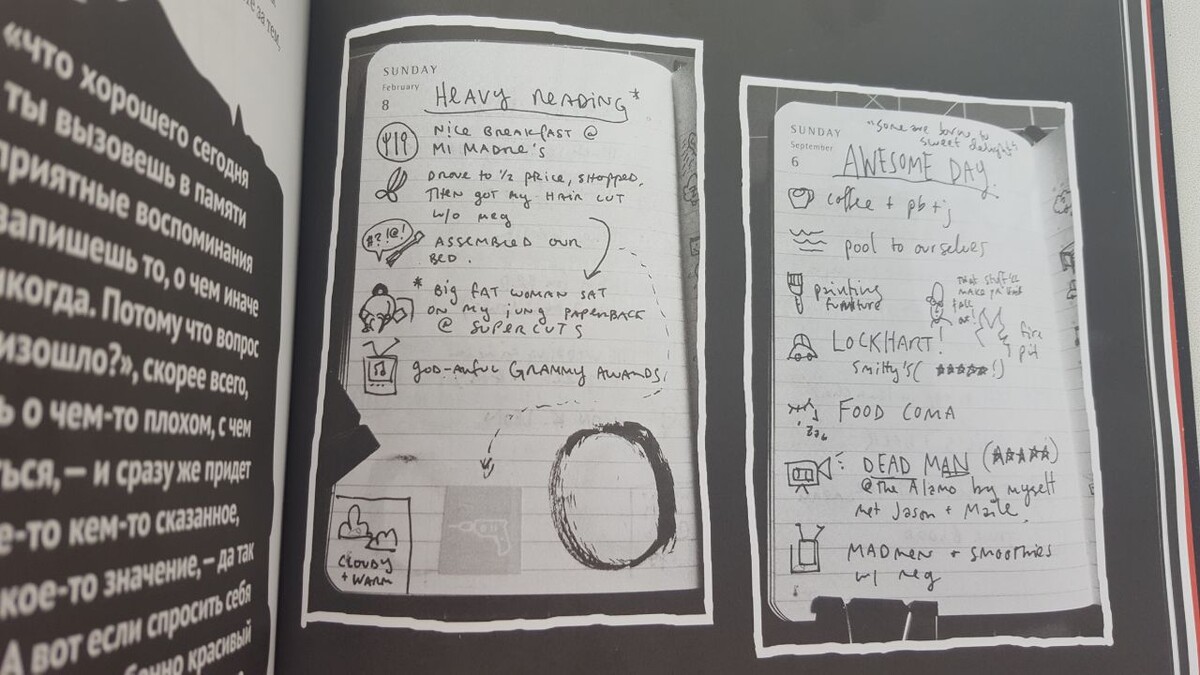 е за тем,
«что хорошего сегодня
ты вызовешь в памяти
приятные воспоминания
запишешь то, о чем иначе
икогда. Потому что вопрос
изошло?», скорее всего,
ь о чем-то плохом, с чем
ться, — и сразу же придет
е-то кем-то сказанное,
кое-то значение, — да так
А вот если спросить себя
бенно красивый
SUNDAY
February
8
HEAVY READING*
NICE BREAKFAST @
MI MADRE'S
DROVE TO 1/2 PRICE, SHOPPED,
THEN GOT MY HAIR CUT
W/O MEG
#?!@!
ASSEMBLED OUR
BED.
* BIG FAT WOMAN SAT
ON MY JUNG PAPERBACK
@ SUPERCUTS
GOD-AWFUL GRAMMY AWARDS
CLOUDY
+ WARM
SUNDAY
September
6
"Some are born to
sweet delight"
AWESOME DAY.
coffee + pb+j
pool to ourselves
painting
furniture
THAT STUFF'LL
MAKE
fall
out!
fire
pit
LOCKHART!
Smitty's (★★★★★!)
FOOD COMA
DEAD MAN (★★★★★)
@The Alamo by myself
met Jason +
MADMEN + SMOOTHIES
w/ meg